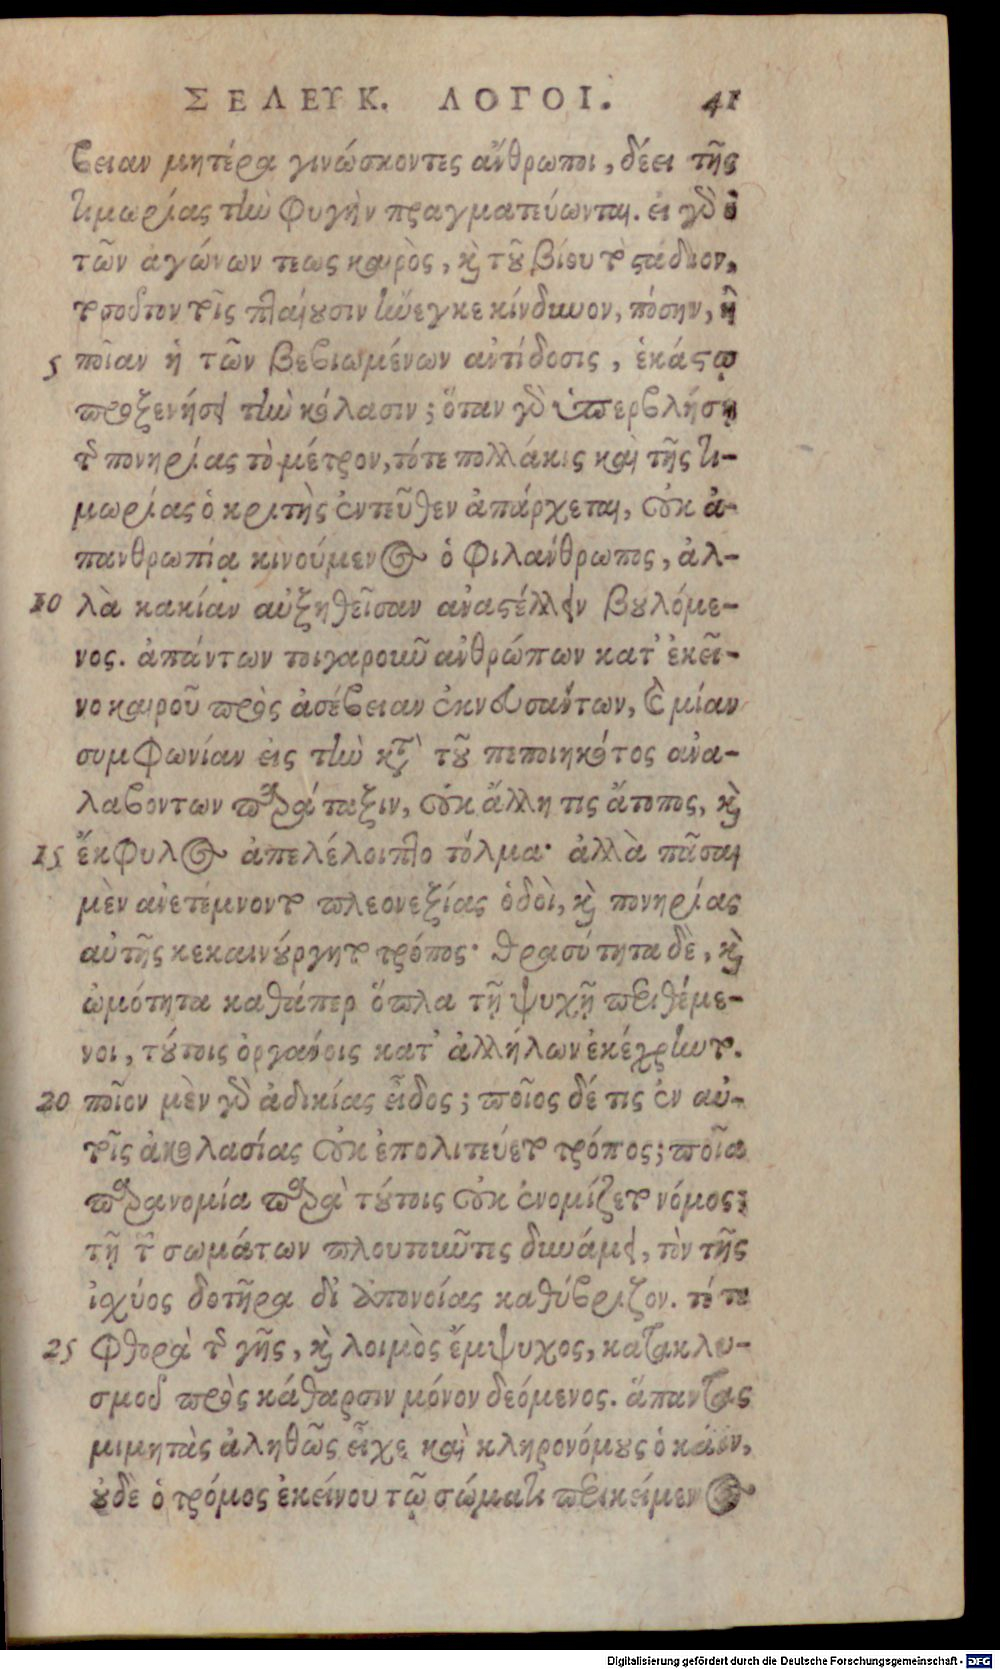 ΣΕΛΕΥΚ. ΛΟΓΟΙ. 41
βειαν μητέρα γινώσκοντες ἄνθρωποι, δέει τῆς
τιμωρίας τὴν φυγὴν πραγματεύωνται. εἰ γὰρ ὁ
τῶν ἀγώνων τεως καιρὸς, καὶ τοῦ βίου τὸ στάδιον,
τοσοῦτον τοῖς πλαίουσιν ἤνεγκε κίνδυνον, πόσην, ἢ
5 ποίαν ἡ τῶν βεβιωμένων ἀντίδοσις, ἑκάστῳ
προξενήσει τὴν κόλασιν; ὅταν γὰρ ὑπερβλήσῃ
τῆς πονηρίας τὸ μέτρον, τότε πολλάκις καὶ τῆς τι-
μωρίας ὁ κριτὴς ἐντεῦθεν ἀπάρχεται, οὐκ ἀ-
πανθρωπίᾳ κινούμενος ὁ φιλάνθρωπος, ἀλ-
10 λὰ κακίαν αὐξηθεῖσαν ἀναστέλλειν βουλόμε-
νος. ἁπάντων τοιγαροῦν ἀνθρώπων κατ' ἐκεῖ-
νο καιροῦ πρὸς ἀσέβειαν ἐκνευσάντων, καὶ μίαν
συμφωνίαν εἰς τὴν κατὰ τοῦ πεποιηκότος ἀνα-
λαβόντων παράταξιν, οὐκ ἄλλη τις ἄτοπος, καὶ
15 ἔκφυλος ἀπελέλοιπτο τόλμα· ἀλλὰ πᾶσαι
μὲν ἀνετέμνοντο πλεονεξίας ὁδοὶ, καὶ πονηρίας
αὐτῆς κεκαινούργητο τρόπος· θρασύτητα δὲ, καὶ
ὠμότητα καθάπερ ὅπλα τῇ ψυχῇ περιθέμε-
νοι, τούτοις ὀργάνοις κατ' ἀλλήλων ἐκέχρηντο.
20 ποῖον μὲν γὰρ ἀδικίας εἶδος; ποῖος δέ τις ἐν αὐ-
τοῖς ἀκολασίας οὐκ ἐπολιτεύετο τρόπος; ποία
παρανομία παρὰ τούτοις οὐκ ἐνομίζετο νόμος;
τῇ τῶν σωμάτων πλουτοῦντες δυνάμει, τὸν τῆς
ἰσχύος δοτῆρα δι' ἀπονοίας καθύβριζον. τότε
25 φθορὰ τῆς γῆς, καὶ λοιμὸς ἔμψυχος, κατακλυ-
σμοῦ πρὸς κάθαρσιν μόνον δεόμενος. ἅπαντας
μιμητὰς ἀληθῶς εἶχε καὶ κληρονόμους ὁ κάιν,
οὐδὲ ὁ τρόμος ἐκείνου τῷ σώματι περικείμενος
Digitalisierung gefördert durch die Deutsche Forschungsgemeinschaft - DFG